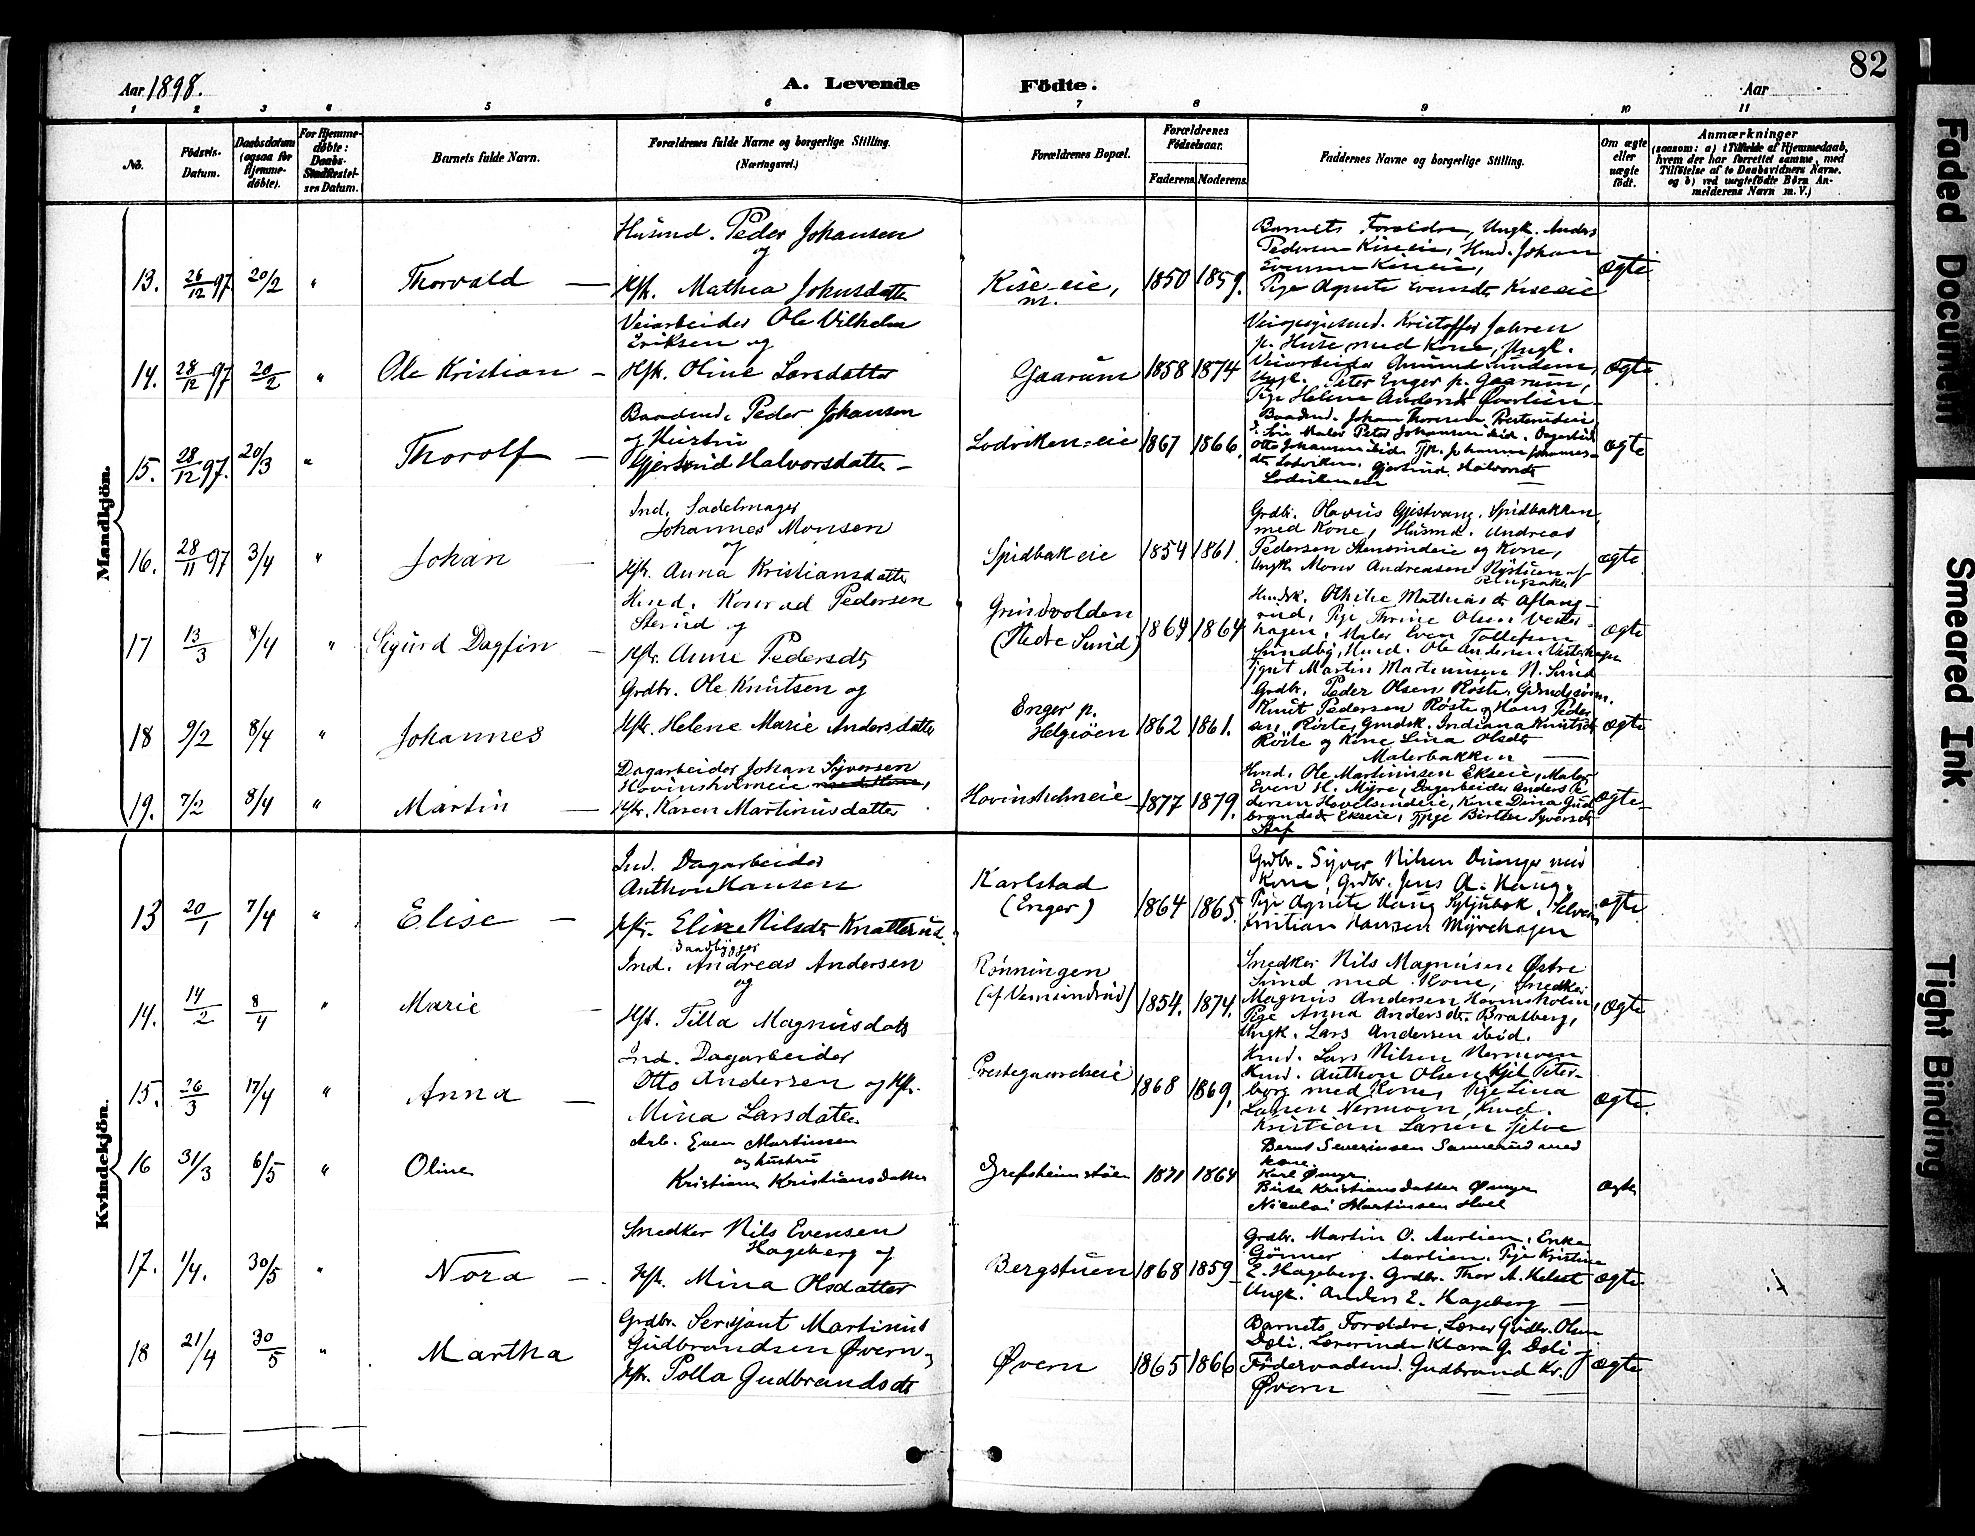 82
Aar 1898.
A. Levende Födte.
Aar
1 2 3 4 5 6 7 8 9 10 11
No.
Födsels-Datum.
Daabsdatum (ogsaa for Hjemme-döbte).
For Hjemme-döbte: Daabs-Stadfæstel-ses Datum.
Barnets fulde Navn.
Forældrenes fulde Navne og borgerlige Stilling. (Næringsvei.)
Forældrenes Bopæl.
Forældrenes Födselsaar.
Faderens. Moderens.
Faddernes Navne og borgerlige Stilling.
Om ægte eller uægte födt.
Anmærkninger
(saasom: a) i Tilfælde af Hjemmedaab,
hvem der har forrettet samme, med
Tilföielse af to Daabsvidners Navne.
og b) ved uægtefödte Börn An-
melderens Navn m. V.)
Mandkjön.
13. 26/12 97 20/2 " Thorvald
Husmd. Peder Johansen
og
Hst. Mathea Johnsdatter
Kise-eie, 1850 1859.
Barnets Foreldre, Ungk. Anders
Pedersen Kiseeie, Husmd. Johan
Evensen Kiseeie,
Pige Agnete Evensdt. Kiseeie
ægte
14. 28/12 97 20/2 " Ole Kristian
Veiarbeider Ole Vilhelm
Eriksen og
Hst. Oline Larsdatter
Gaarum 1858 1874
Kristoffer
med Kone, Ungk.
Veiarbeider Amund
Ungk. Peter Enger p. Gaarum,
Pige Helene Andersdt. Øverlien
ægte
15. 28/12 97. 20/3 " Thorolf
Baadsmd. Peder Johansen
og Hustru
Gjertrud Halvorsdatter
Lodviken-eie 1867 1866.
Baadsmd. Johan Thoresen
Maler Peter Johansen ibid.
Otto Johansen ibid.
Lodviken. Gjertrud Halvorsdt.
Lodviken
ægte
16. 28/11 97 3/4 " Johan
Ind. Sadelmager
Johannes Monsen
og
Hst. Anna Kristiansdatter
Spidbakeie 1854 1861.
Grdbr. Olavus Gjestvang, Spidbakken,
med Kone, Husmd. Andreas
Pedersen Stensrudeie og Kone,
Ungk. Mons Andreasen
Ringsaker
ægte
17 13/3 8/4 " Sigurd Dagfin
Hmd. Konrad Pedersen
og
Hst. Anne Pedersdt.
Grundvolden
(Nedre Sund) 1864 1864
Mathiasdt.
Pige Thrine Olsen Vester-
hagen, Maler Even Tollefsen
Sundby, Husmd. Ole Andersen Vesterhagen
Martin Martinusen N. Sund
ægte
18 9/2 8/4 " Johannes
Grdbr. Ole Knutsen og
Hst. Helene Marie Andersdatter
Enger p.
Helgiöen 1862 1861.
Grdbr. Peder Olsen Röste,
Knut Pedersen Röste og Hans Peder-
sen, Röste, Grmdsk. Indiana Knutsdt.
Röste og Kone Lina Olsdt.
Malerbakken
ægte
19. 7/2 8/4 " Martin
Dagarbeider Johan Syversen
Hovinsholmeie med Kone,
Hst. Karen Martinusdatter
Hovinsholmeie 1877 1879.
Husmd. Ole Martinusen Ekeeie, Maler
Even H. Myre, Dagarbeider Anders
Kone Dina Gud-
brandsdt. Ekeeie, Pige Birthe Syversdt.
ægte
Kvindekjön.
13 20/1 7/4 " Elise
Ind. Dagarbeider
Anthon Hansen
Hst. Eline Nilsdt. Knatterud.
Karlstad
(Enger) 1864 1865.
Grdbr. Syver Nilsen med
Kone, Grdbr. Jens A. Haug,
Pige Agnete Haug
Kristian Hansen Myrehagen
ægte
14. 14/2 8/4 " Marie
Baadbygger
Ind. Andreas Andersen
og
Hst. Tilla Magnusdatt.
Rønningen
1854. 1874.
Snedker Nils Magnusen Østre
Sund med Kone, Snedker
Magnus Andersen Hovinsholm,
Pige Anna Andersdt. Bratberg,
Ungk. Lars Andersen ibid.
ægte
15. 26/3 17/4 " Anna
Ind. Dagarbeider
Otto Andersen og Hst.
Mina Larsdatter
Prestegaardseie 1868 1869.
Husmd. Lars Nilsen Nermoen
Husmd. Anthon Olsen Peter-
borg med Kone, Pige Lina
Larsen Nermoen, Husmd.
Kristian Larsen
ægte.
16 31/3 6/5 " Oline
Arb. Even Martinsen
og hustru
Kristiane Kristiansdatter
Grefsheimstöen 1871 1864
Bernt Severinsen Sannerud med
kone.
Karl
Birte Kristiansdatter
Nicolai Martinsen Hoel
ægte
17. 1/4. 30/5 " Nora
Snedker Nils Evensen
Hageberg og
Hst. Mina Olsdatter
Bergstuen 1868 1859
Grdbr. Martin O. Aurlien, Enke
Gönner Aurlien, Pige Kristine
E. Hageberg. Grdbr. Thor A. Helset
Ungk. Anders E. Hageberg
ægte
18 21/4 30/5 " Martha
Grdbr. Sersjant Martinus
Gudbrandsen Øvern,
Hst. Polla Gudbrandsdt.
Øvern 1865 1866
Barnets Foreldre, Lærer Gudbr. Olsen
Dæli, Lærerinde Klara G. Dæli og
Födevadsmd. Gudbrand Kr.
Øvern
ægte
Faded Document
Smeared Ink.
Tight Binding